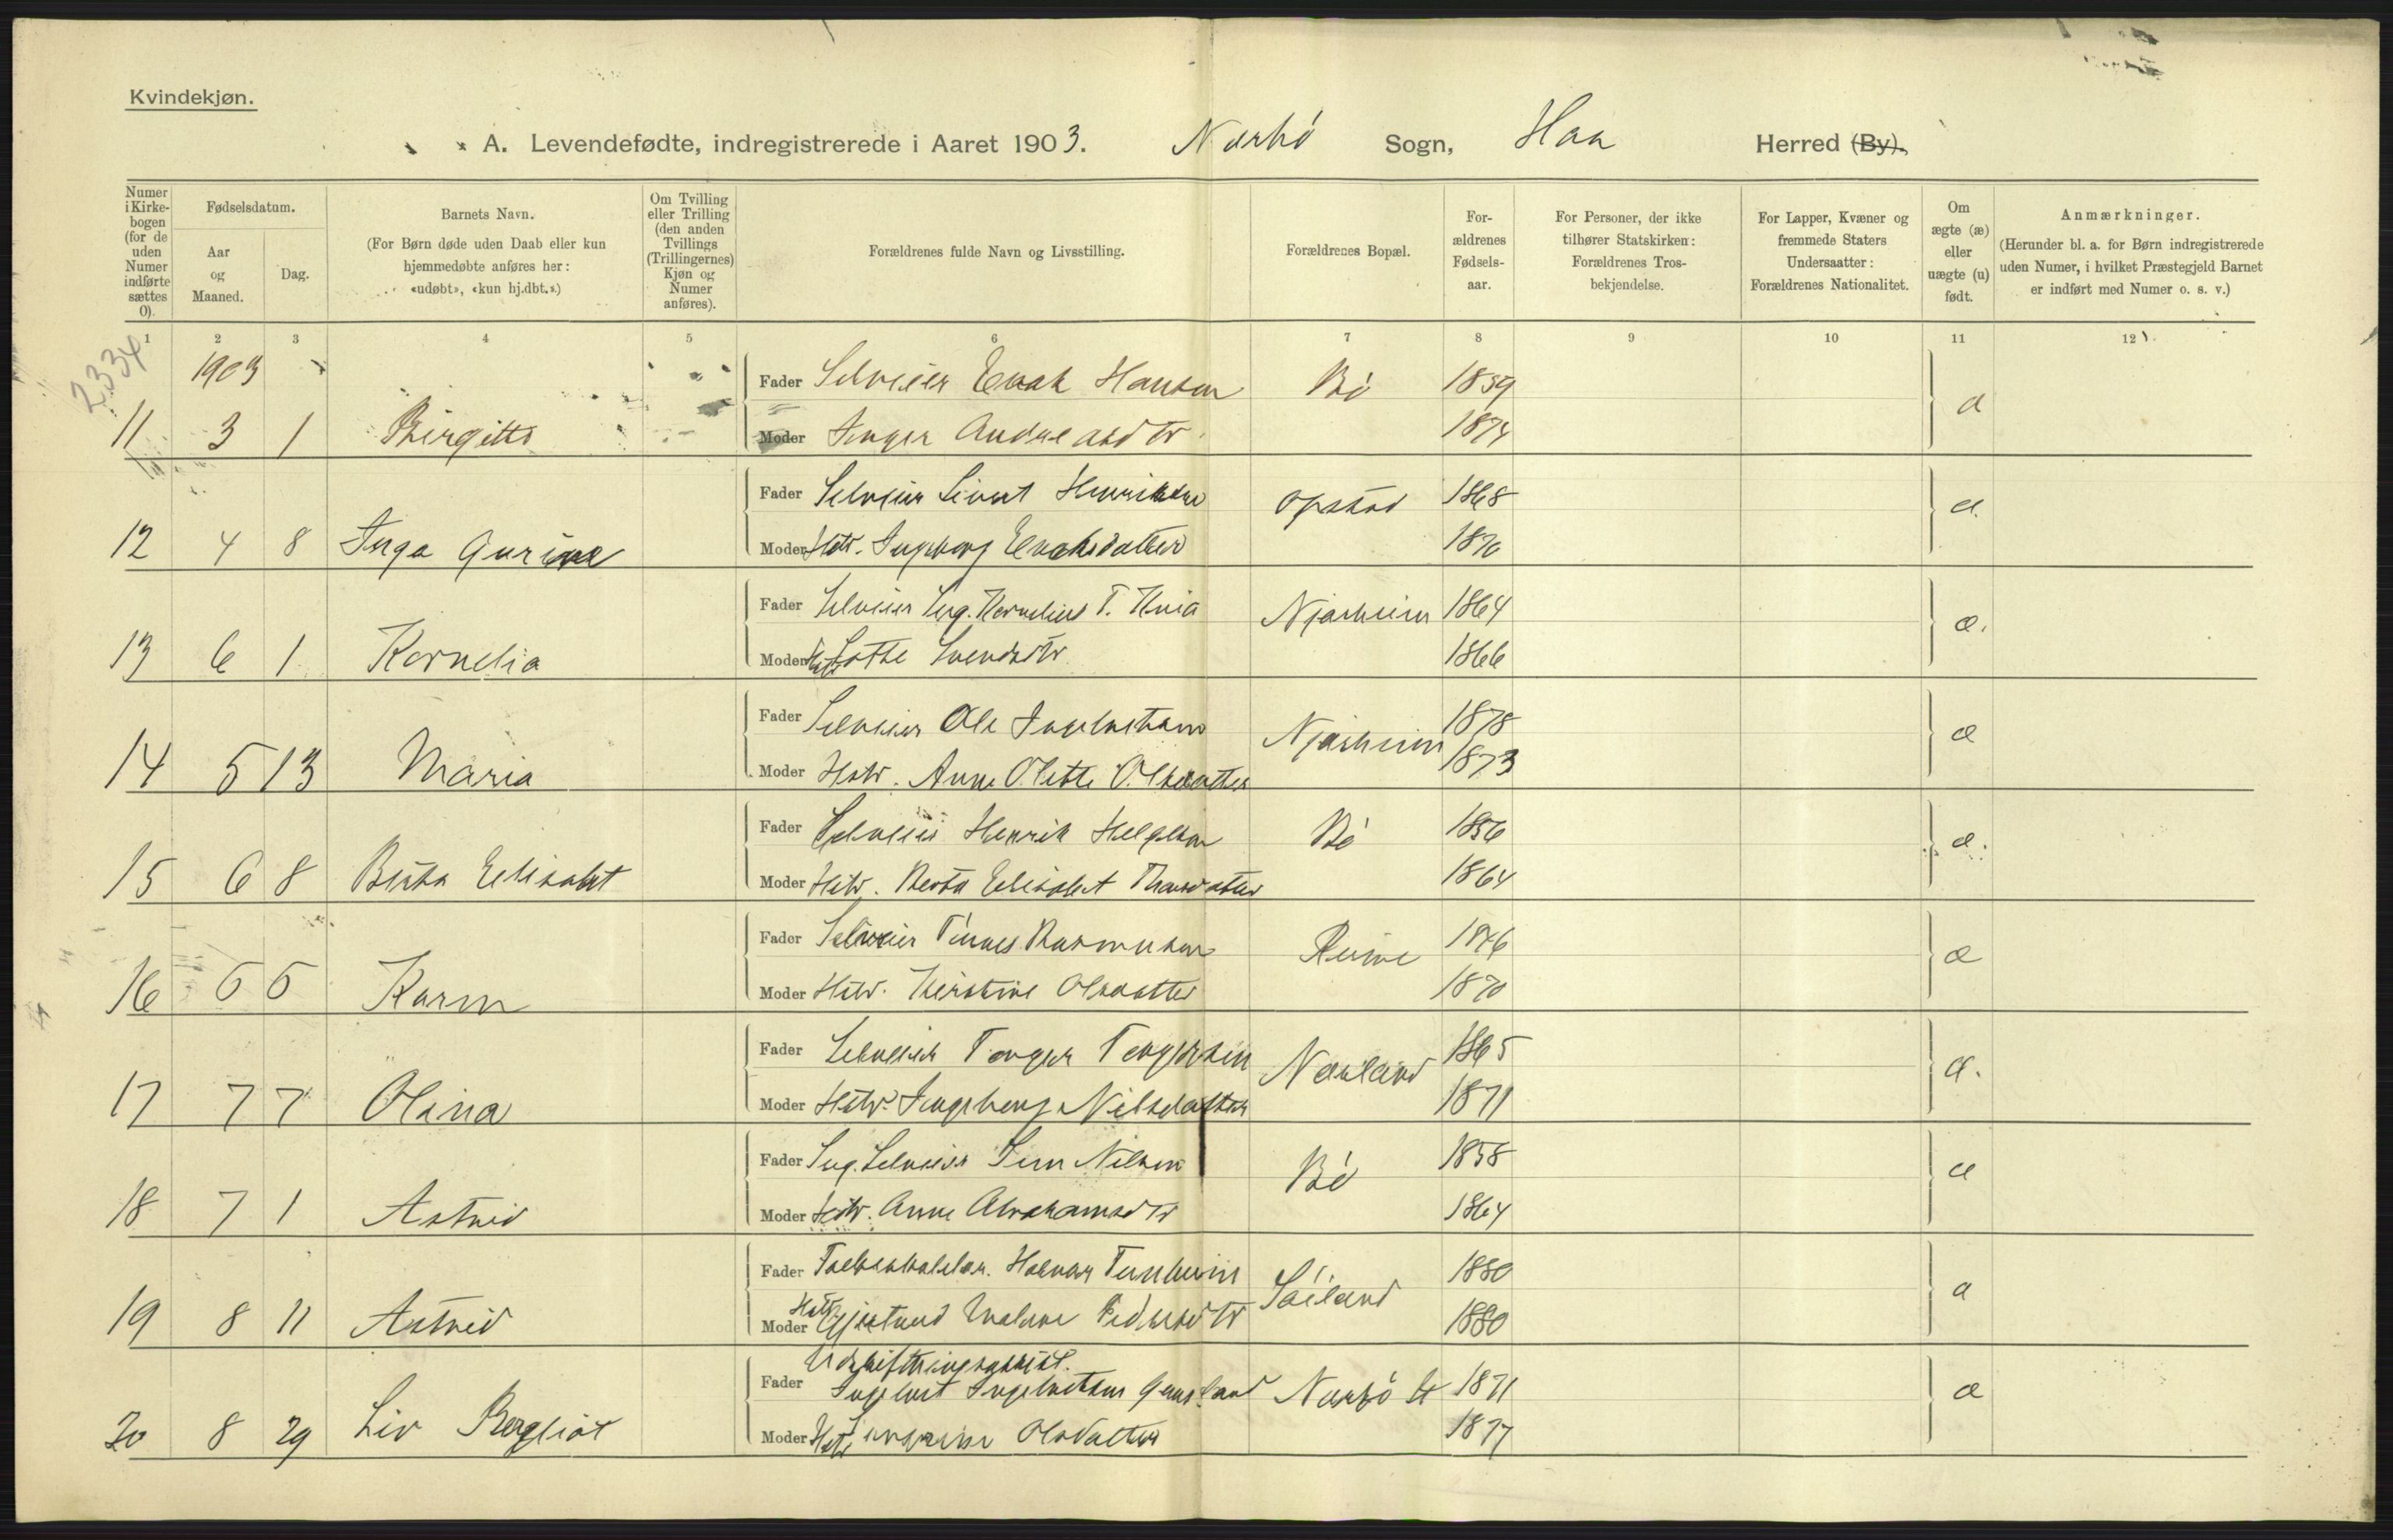 Kvindekjøn.
A. Levendefødte, indregistrerede i Aaret 1903. Nærbø Sogn, Haa Herred (By).
Numer i Kirkebogen (for de uden Numer indførte sættes 0).
Fødselsdatum.
Aar og Maaned.
Dag.
Barnets Navn.
(For Børn døde uden Daab eller kun hjemmedøbte anføres her: «udøbt», «kun hj.dbt.».)
Om Tvilling eller Trilling (den anden Tvillings (Trillingernes) Kjøn og Numer anføres).
Forældrenes fulde Navn og Livsstilling.
Forældrenes Bopæl.
For-ældrenes Fødsels-aar.
For Personer, der ikke tilhører Statskirken: Forældrenes Tros-bekjendelse.
For Lapper, Kvæner og fremmede Staters Undersaatter: Forældrenes Nationalitet.
Om ægte (æ) eller uægte (u) født.
Anmærkninger.
(Herunder bl. a. for Børn indregistrerede uden Numer, i hvilket Præstegjeld Barnet er indført med Numer o. s. v.)
1 2 3 4 5 6 7 8 9 10 11 12
2334
1903
Fader Selveier Enok Hansen Bø 1859 æ
11 3 1 Birgitte Moder Inger Andreasdtr. 1874
Fader Selveier Sivert Henriksen Opstad 1868 æ.
12 4 8 Inga Gurine Moder Hstr. Ingeborg Enoksdatter 1870
Fader Selveier Kornelius T. Njærheim 1864 æ.
13 6 1 Kornelia Moder Hstr. Lothe Svendsdtr 1866
Fader Selveier Ole Ingebretsen Njærheim 1878 æ
14 5 13 Maria Moder Hstr. Anne Olette Olsdatter 1873
Fader Selveier Henrik Helgesen Bø 1856 æ.
15 6 8 Berta Elisabet Moder Hstr. Berta Elisabet 1864
Fader Selveier Tønnes Rasmusen Reime æ
16 5 5 Karen Moder Hstr. Kirstine Olsdatter 1870
Fader Selveier Torger Torgersen Nærland 1865 æ.
17 7 7 Olina Moder Hstr. Ingeborg Nilsdatter 1871
Fader Selveier Nilsen Bø 1858 æ
18 7 1 Astrid Moder Hstr. Anne Abrahamsdtr 1864
Fader Folkeskolelær. Halvar Tunheim 1880 æ
19 8 11 Astrid Moder Hstr. Malene Pedersdtr 1880
Udskiftningsassist.
Fader Ingebret Ingebretsen Nærbø St 1871 æ
20 8 29 Liv Bergliot Moder Hstr Olsdatter 1877